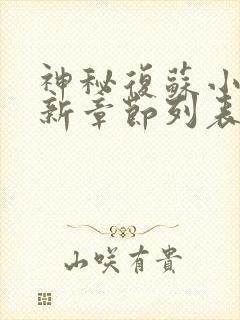 神秘復蘇小
新章節列表
山咲有貴